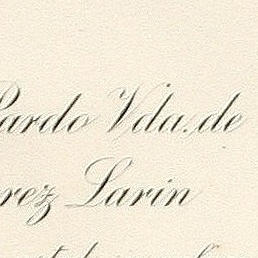 Pardo Vda. de
rez Larin